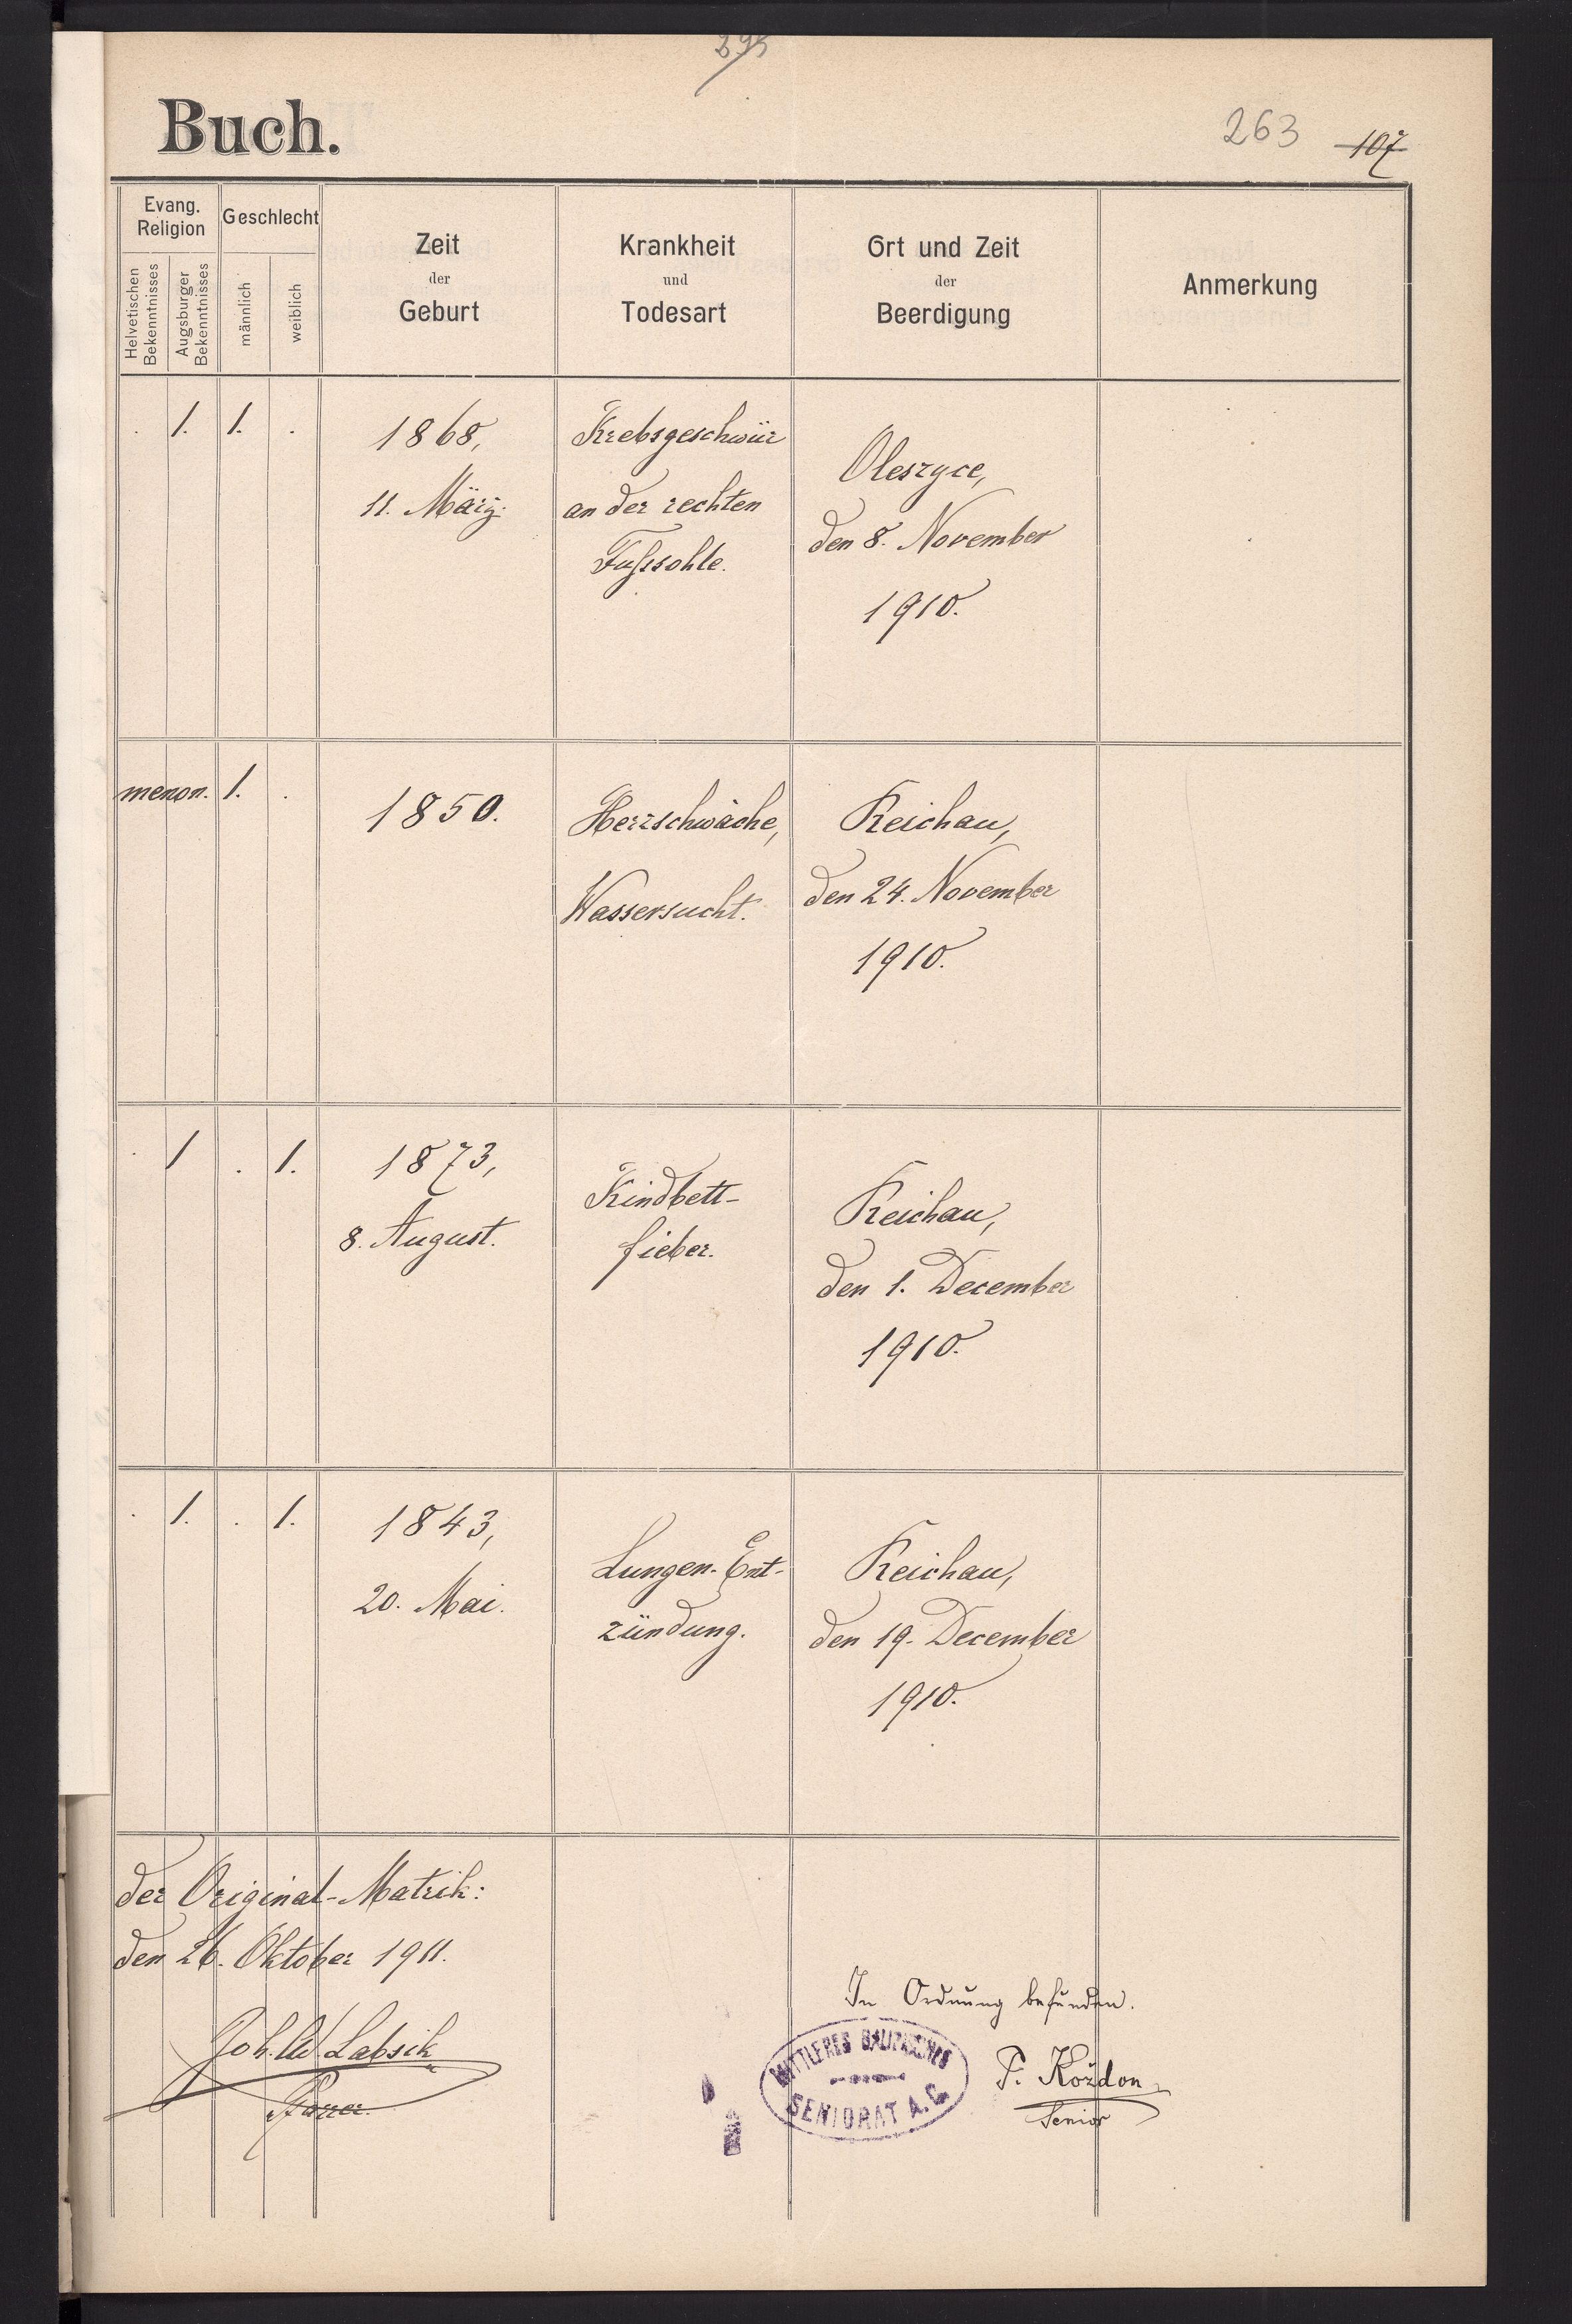 295
Buch.
263 107
Evang. Religion
Geschlecht
Helvetischen Bekenntnisses
Augsburger Bekenntnisses
männlich
weiblich
Zeit
der
Geburt
Krankheit
und
Todesart
Ort und Zeit
der
Beerdigung
Anmerkung
. 1. 1. .
1868,
11. März.
Krebsgeschwür
an der rechten
Fußsohle.
Oleszyce,
den 8. November
1910.
menon. 1. .
1850.
Herzschwäche,
Wassersucht.
Reichau,
den 24. November
1910.
. 1 . 1.
1873,
8. August.
Kindbett-
fieber.
Reichau,
den 1. December
1910.
. 1. . 1.
1843,
20. Mai.
Lungen-Ent-
zündung.
Reichau,
den 19. December
1910.
der Original-Matrik:
den 26. Oktober 1911.
Joh. Ad. Labsik
Pfarrer.
In Ordnung befunden.
MITTLERES GALIZISCHES
SENIORAT A. C.
P. Koždon
Senior